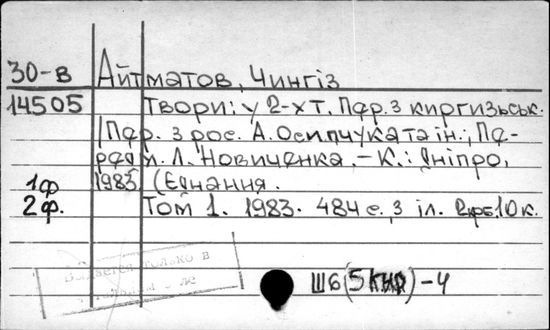 30-в Айтматов, Чингіз
14505 Твори: у 2-х т. Пер. з киргизьск.
/Пер. з рос. А. Осипчука та ін.; Пе-
редм. Л. Новиченка. – К.: Дніпро,
1ф 1983. (Єднання.
2ф. Том 1. 1983. 484 с., з іл. 2крб.10к.
только в
Ш6(5КИР)-4